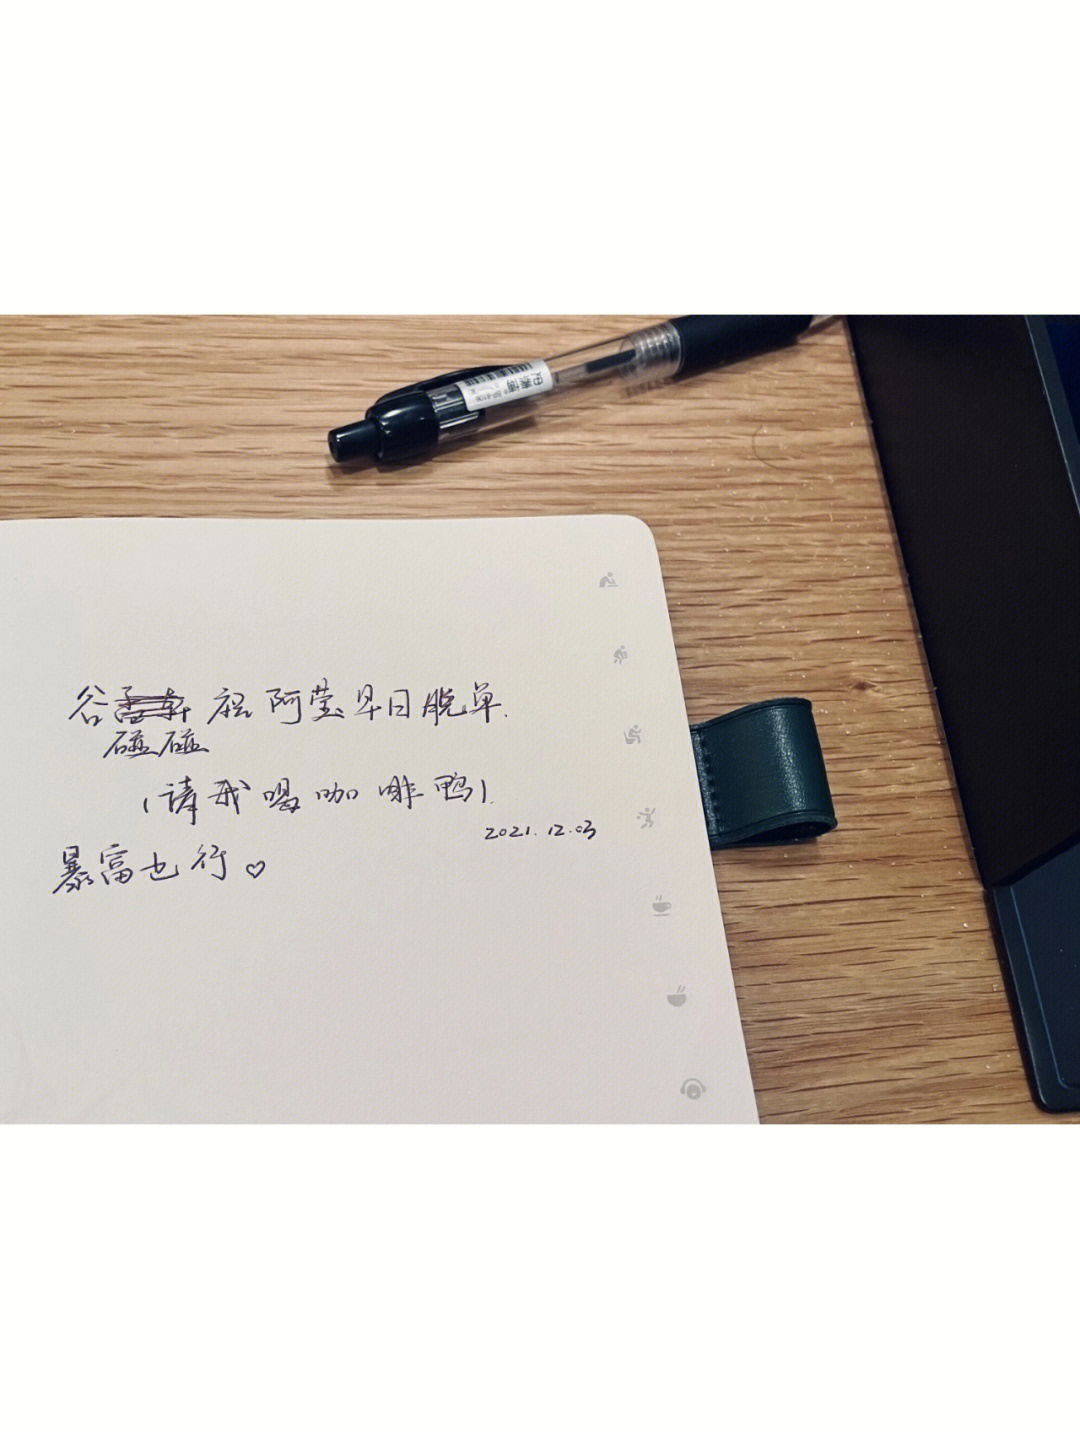 谷 祝阿莹早日脱单.
碰碰
(请我喝咖啡鸭).
2021.12.03
暴富也行。♡